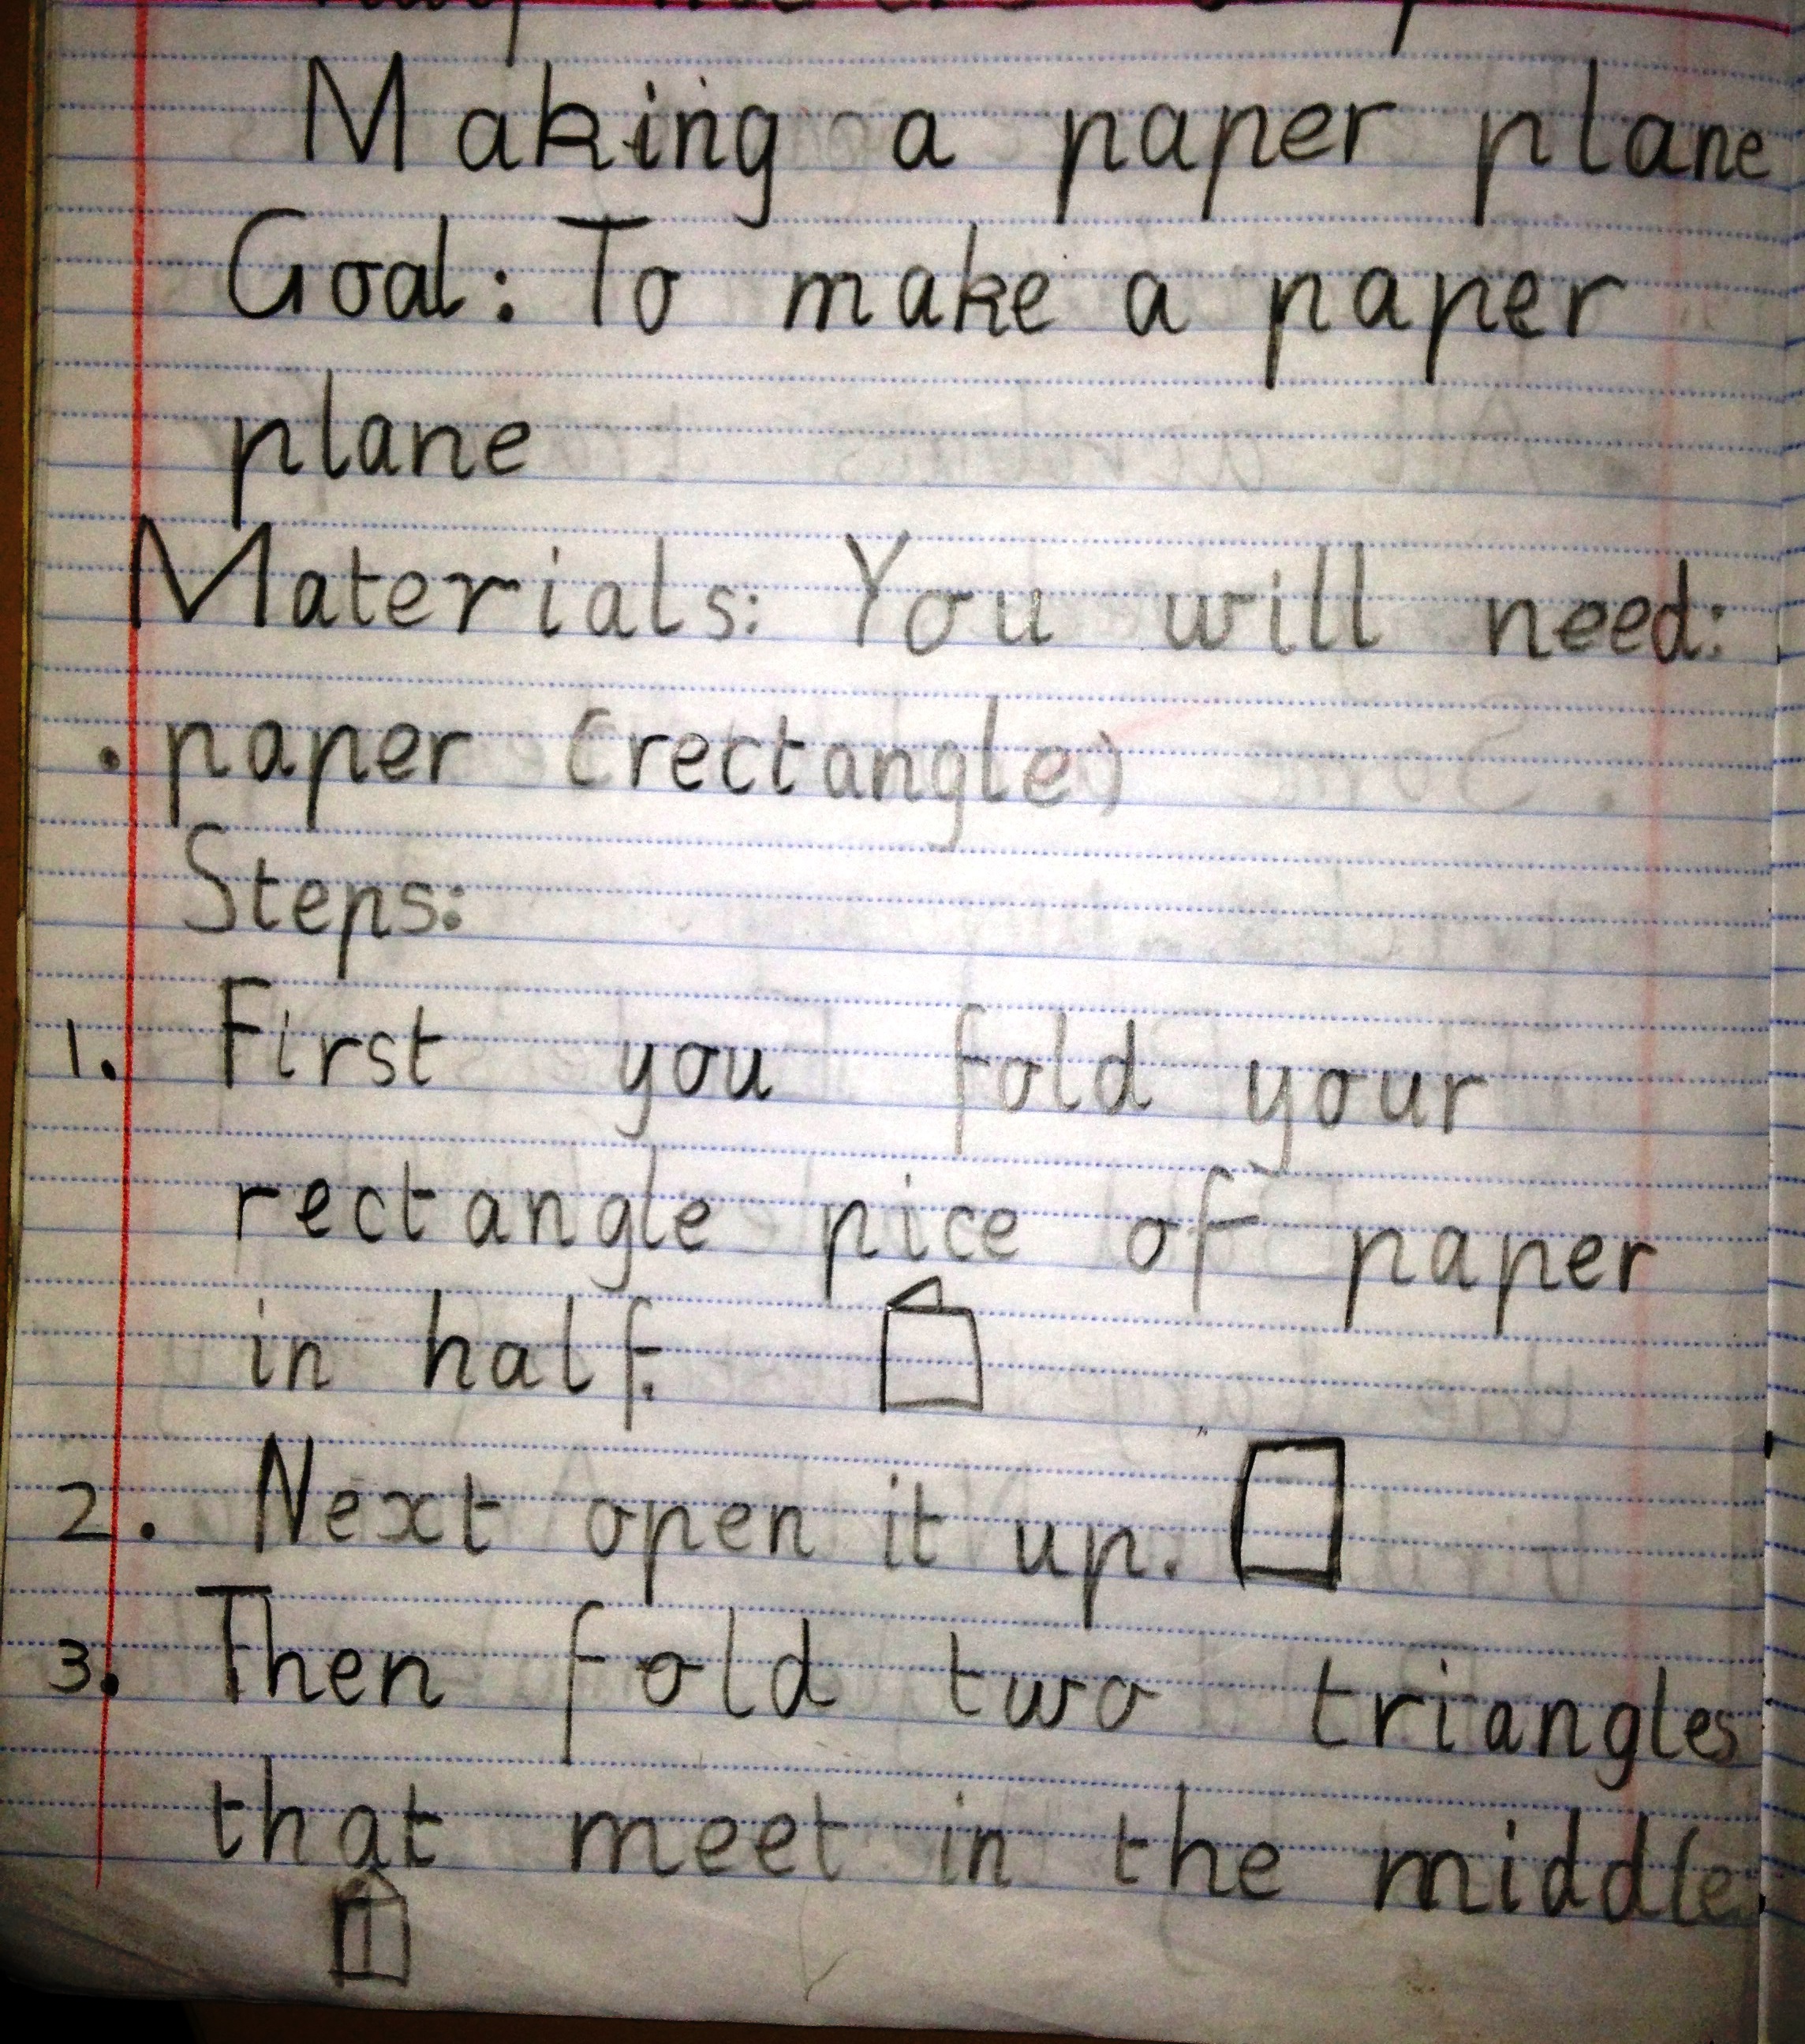 Making a paper plane
Goal: To make a paper
plane
Materials: You will need:
• paper (rectangle)
Steps:
1. First you fold your
rectangle pice of paper
in half.
2. Next open it up.
3. Then fold two triangles
that meet in the middle.